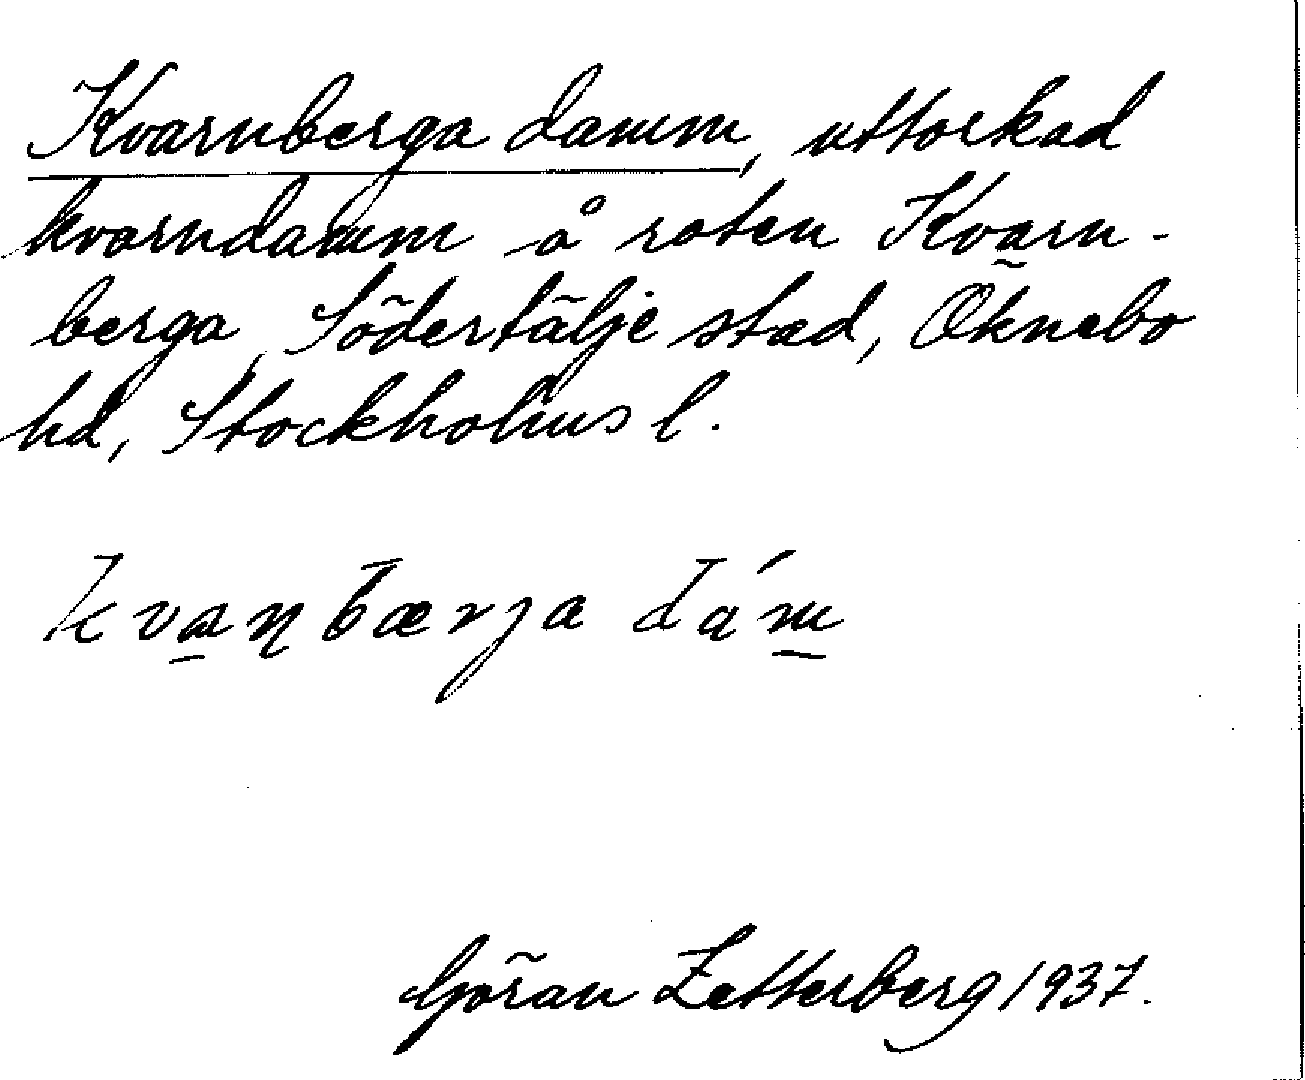 Kvarnberga damm, uttorkad
kvarndamm å roten Kvarn-
berga, Södertälje stad, Öknebo
hd, Stockholms l.
kvaɳbærja dám
Göran Zetterberg 1937.